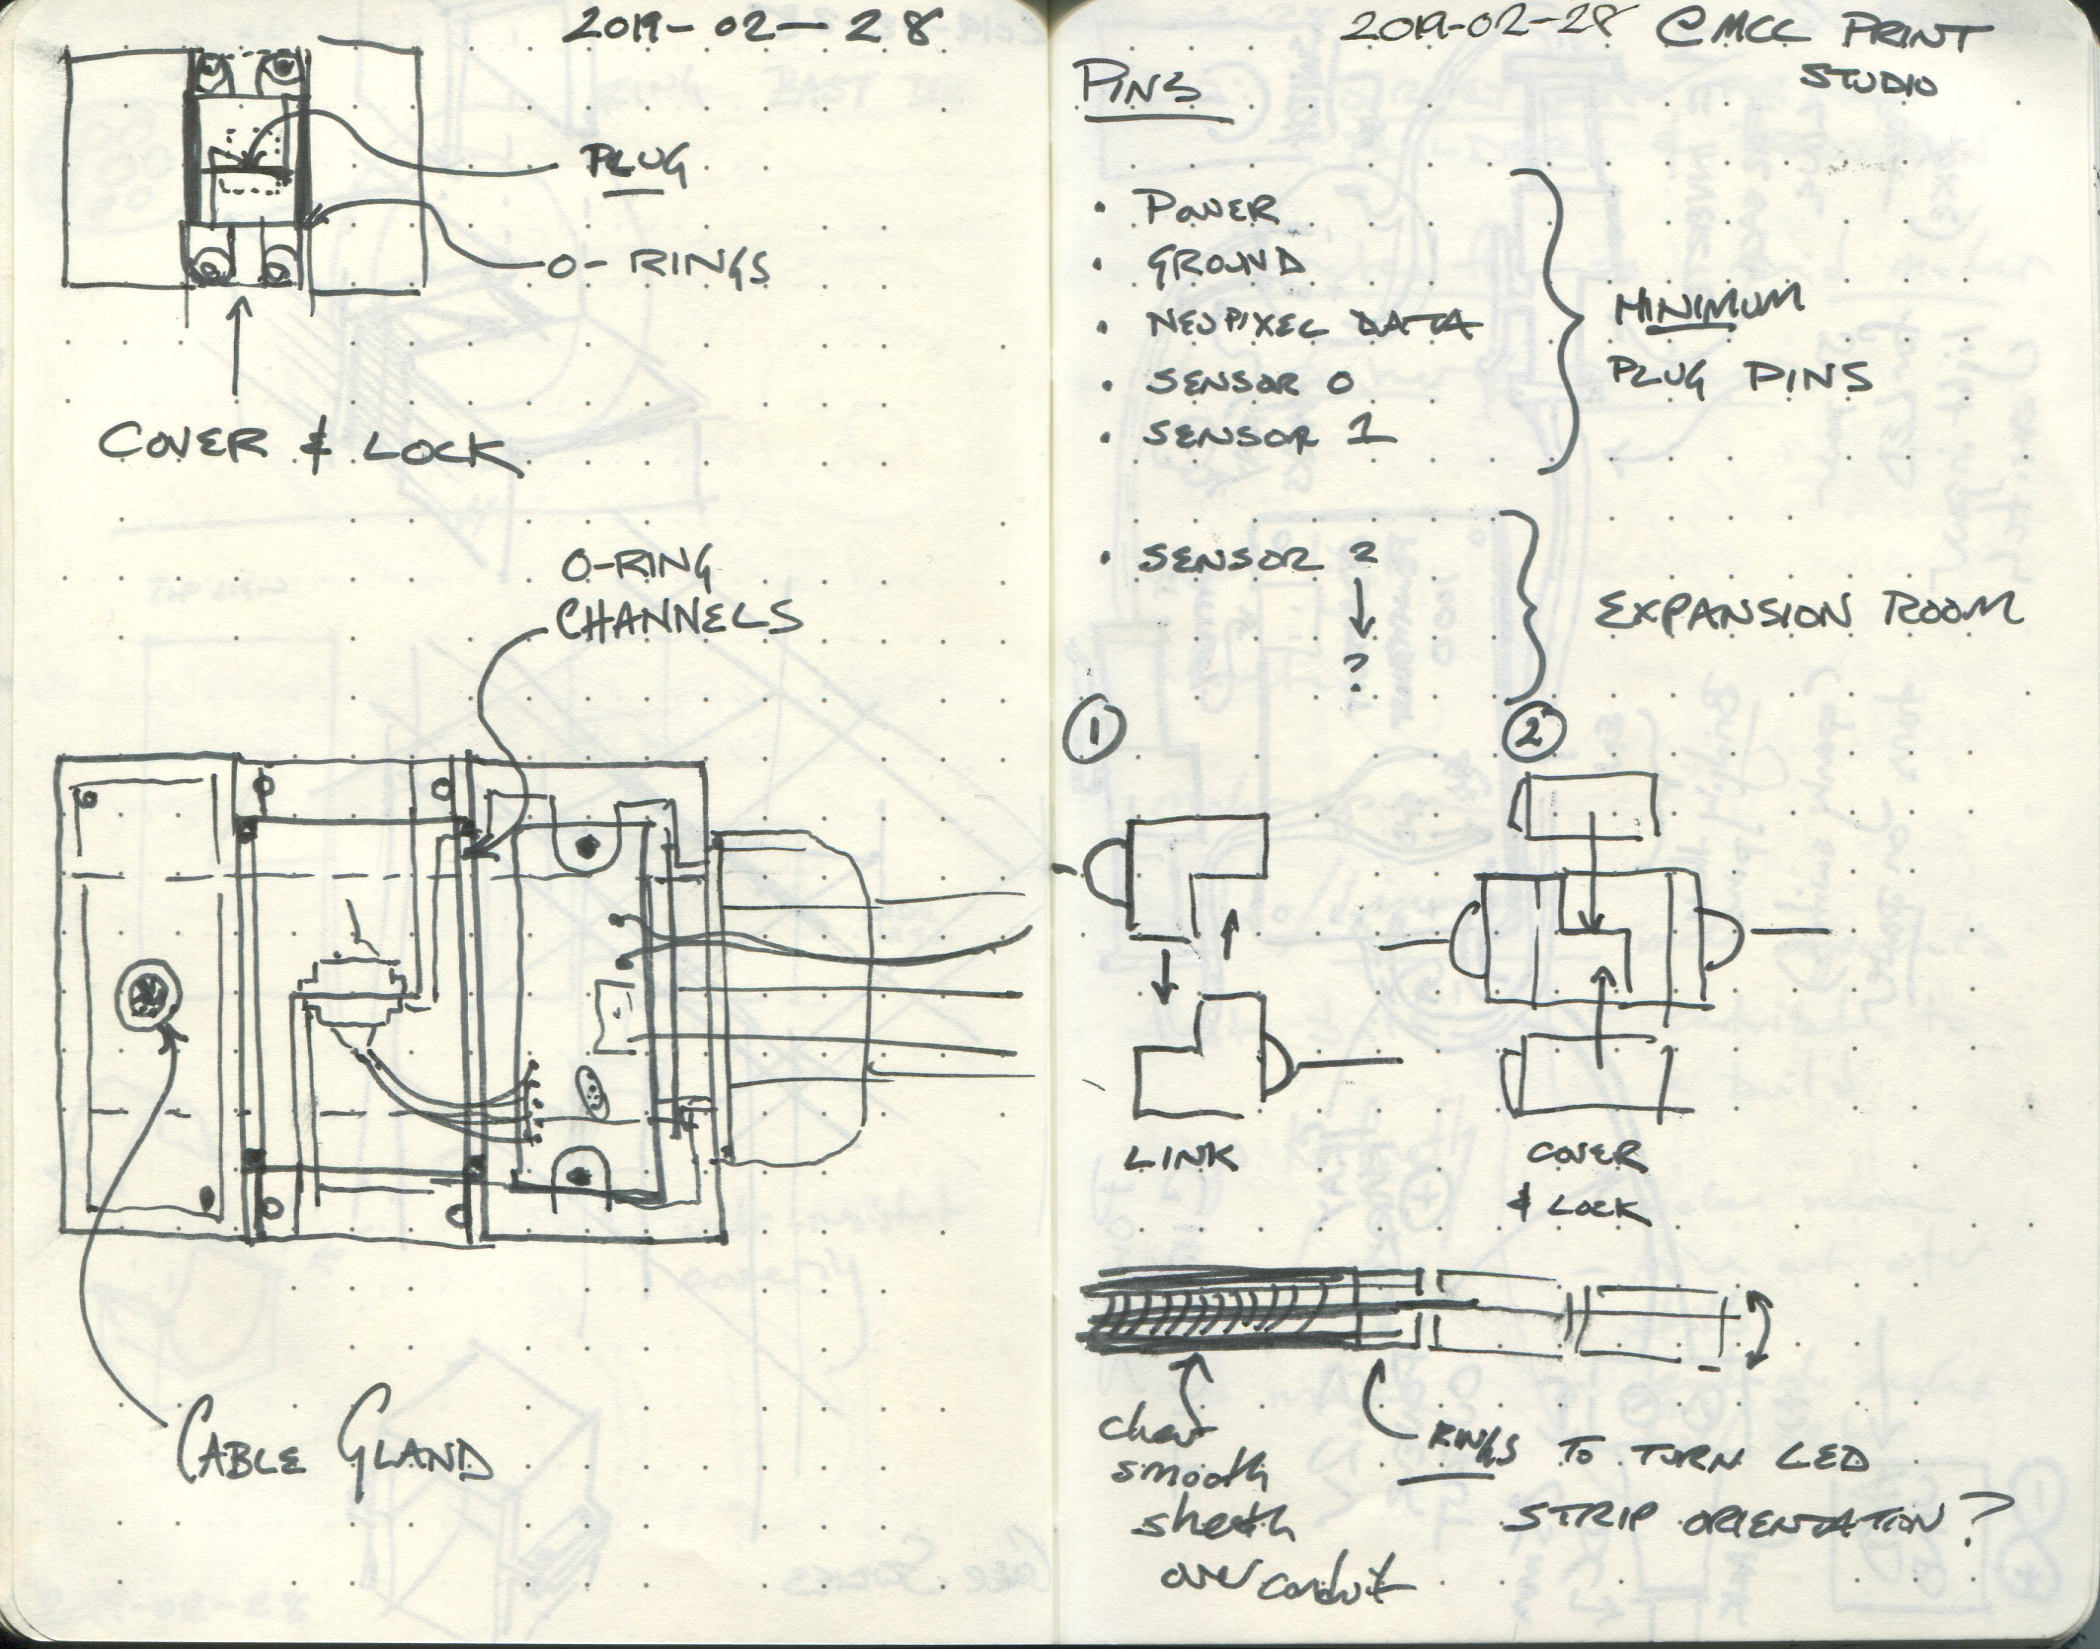 2019-02-28
PLUG
O-RINGS
COVER & LOCK
O-RING
CHANNELS
CABLE GLAND
2019-02-28 @MCC PRINT
STUDIO
PINS
• POWER
• GROUND
• NEOPIXEL DATA
• SENSOR 0
• SENSOR 1
MINIMUM
PLUG PINS
• SENSOR 2
↓
?
EXPANSION ROOM
1
2
LINK
COVER
& LOCK
clear
smooth
sheath
over conduit
RINGS TO TURN LED
STRIP ORIENTATION?